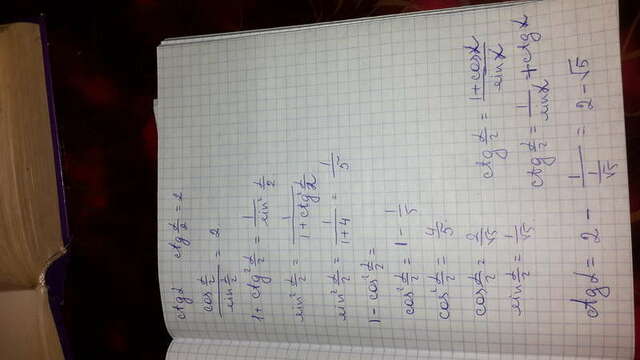 ctgα ctg α/2 = 2
cos α/2 / sin α/2 = 2
1 + ctg² α/2 = 1 / sin² α/2
sin² α/2 = 1 / (1 + ctg² α/2)
sin² α/2 = 1 / (1+4) = 1/5
1 - cos² α/2 =
cos² α/2 = 1 - 1/5
cos² α/2 = 4/5
cos α/2 = 2/√5
sin α/2 = 1/√5
ctg α/2 = (1 + cosα) / sinα
ctg α/2 = 1 / sinα + ctg α
ctgα = 2 - 1 / (1/√5) = 2 - √5